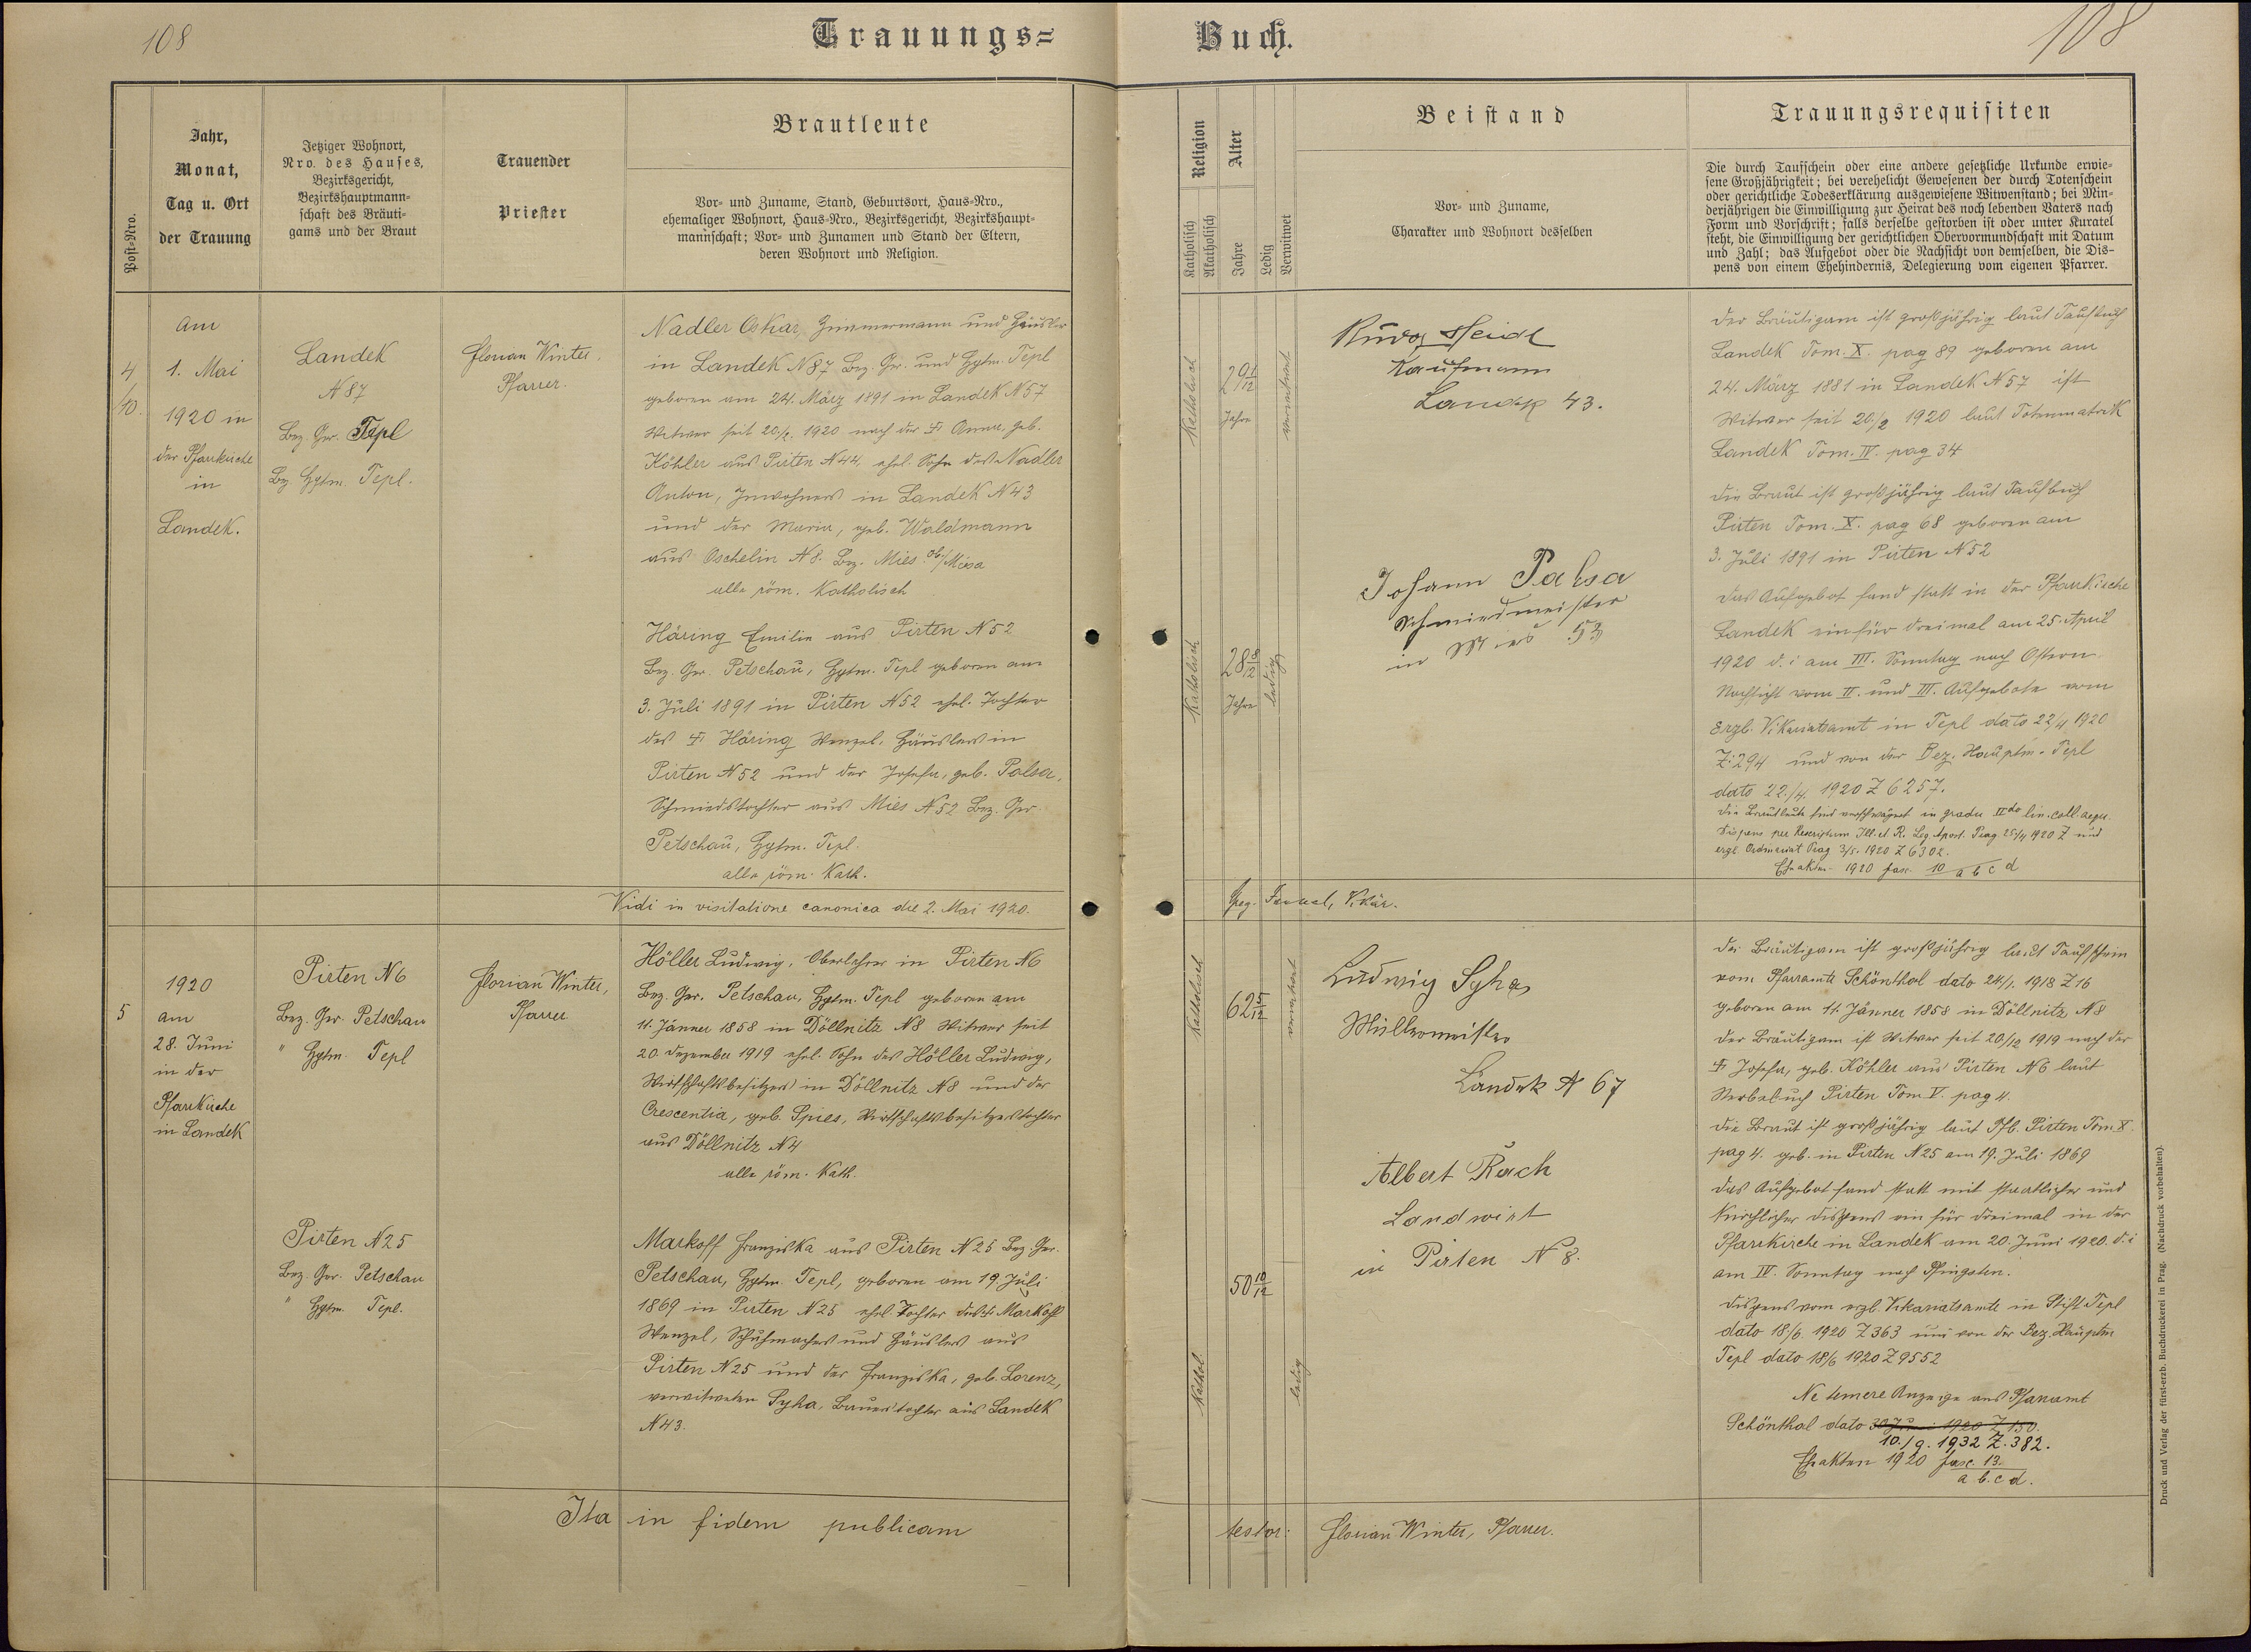 108
Trauungs=
Buch.
108
Post-Nro.
Jahr,
Monat,
Tag u. Ort
der Trauung
Jetziger Wohnort,
Nro. des Hauses,
Bezirksgericht,
Bezirkshauptmann-
schaft des Bräuti-
gams und der Braut
Trauender
Priester
Brautleute
Vor- und Zuname, Stand, Geburtsort, Haus-Nro.,
ehemaliger Wohnort, Haus-Nro., Bezirksgericht, Bezirkshaupt-
mannschaft; Vor- und Zunamen und Stand der Eltern,
deren Wohnort und Religion.
Religion
Katholisch
Akatholisch
Alter
Jahre
Ledig
Verwitwet
Beistand
Vor- und Zuname,
Charakter und Wohnort desselben
Trauungsrequisiten
Die durch Taufschein oder eine andere gesetzliche Urkunde erwie-
sene Großjährigkeit; bei verehelicht Gewesenen der durch Totenschein
oder gerichtliche Todeserklärung ausgewiesene Witwenstand; bei Min-
derjährigen die Einwilligung zur Heirat des noch lebenden Vaters nach
Form und Vorschrift; falls derselbe gestorben ist oder unter Kuratel
steht, die Einwilligung der gerichtlichen Obervormundschaft mit Datum
und Zahl; das Aufgebot oder die Nachsicht von demselben, die Dis-
pens von einem Ehehindernis, Delegierung vom eigenen Pfarrer.
4
/10.
am
1. Mai
1920 in
der Pfarrkirche
in
Landek.
Landek
N 87
Bez. Ger. Tepl
Bez. Hptm. Tepl.
Florian Winter,
Pfarrer.
Nadler Oskar, Zimmermann und Häusler
in Landek N 87 Bez. Ger. und Hptm. Tepl
geboren am 24. März 1891 in Landek N 57
Witwer seit 20./2. 1920 nach der † Anna, geb.
Köhler aus Pirten N 44, ehel. Sohn des Nadler
Anton, Inwohners in Landek N 43
und der Maria, geb. Waldmann
aus Oschelin N 8. Bez. Mies ob/Miesa
alle röm. Katholisch
Häring Emilie aus Pirten N 52
Bez. Ger. Petschau, Hptm. Tepl geboren am
3. Juli 1891 in Pirten N 52 ehel. Tochter
des † Häring Wenzel, Häuslers in
Pirten N 52 und der Josefa, geb. Palsa,
Schmiedstochter aus Mies N 52 Bez. Ger.
Petschau, Hptm. Tepl.
alle röm. Kath.
Katholisch
29 1/12
Jahre
verwitwet
Katholisch
28 8/12
Jahre
ledig
Heidl
Kaufmann
Landek 43.
Johann Palsa
Schmiedmeister
in Mies 53
Der Bräutigam ist großjährig laut Taufbuch
Landek Tom. X. pag 89 geboren am
24. März 1881 in Landek N 57 ist
Witwer seit 20./2 1920 laut Totenmatrik
Landek Tom. IV. pag 34
Die Braut ist großjährig laut Taufbuch
Pirten Tom. X. pag 68 geboren am
3. Juli 1891 in Pirten N 52
Das Aufgebot fand statt in der Pfarrkirche
Landek ein für dreimal am 25. April
1920 d. i am III. Sonntag nach Ostern.
Nachsicht vom II. und III. Aufgebote vom
Ergb. Vikariatsamt in Tepl dato 22/4 1920
Z: 294 und von der Bez. Hauptm. Tepl
dato 22./4. 1920 Z 6257.
Die Brautleute sind verschwägert in gradu II do lin. coll aequ.
Dispens per Rescriptum Ill. et R. Leg. Apost. Prag 25/4 1920 Z und
ergb. Ordinariat Prag 3/5. 1920 Z 6302.
Ehakten 1920 fasc. 10 a b c d
Vidi in visitatione canonica die 2. Mai 1920.
Vikär.
5
1920
am
28. Juni
in der
Pfarrkirche
in Landek
Pirten N 6
Bez. Ger. Petschau
" Hptm. Tepl
Pirten N 25
Bez. Ger. Petschau
" Hptm. Tepl.
Florian Winter,
Pfarrer
Höller Ludwig, Oberlehrer in Pirten N 6
Bez. Ger. Petschau, Hptm. Tepl geboren am
11. Jänner 1858 in Döllnitz N 8 Witwer seit
20. Dezember 1919 ehel. Sohn des Höller Ludwig,
Wirtschaftsbesitzers in Döllnitz N 8 und der
Crescentia, geb. Spies, Wirtschaftsbesitzerstochter
aus Döllnitz N 4
alle röm. Kath.
Markoff Franziska aus Pirten N 25 Bez. Ger.
Petschau, Hptm. Tepl, geboren am 19. Juli
1869 in Pirten N 25 ehel. Tochter des † Markoff
Wenzel, Schuhmachers und Häuslers aus
Pirten N 25 und der Franziska, geb. Lorenz,
verwitweten Syha, Bauerstochter aus Landek
N 43.
Katholisch
62 5/12
verwitwet
Kathol.
50 10/12
ledig
Ludwig Syha,
Müllermeister
Landek N 67
Albert Rach
Landwirt
in Pirten N 8.
Der Bräutigam ist großjährig laut Taufschein
vom Pfarramte Schönthal dato 24/1. 1918 Z 16
geboren am 11. Jänner 1858 in Döllnitz N 8
Der Bräutigam ist Witwer seit 20./12 1919 nach der
† Josefa, geb. Köhler aus Pirten N 6 laut
Sterbebuch Pirten Tom V. pag 4.
Die Braut ist großjährig laut Tfb. Pirten Tom. X.
pag 4. geb. in Pirten N 25 am 19. Juli 1869
Das Aufgebot fand statt mit staatlicher und
kirchlicher Dispens ein für dreimal in der
Pfarrkirche in Landek am 20. Juni 1920. d. i
am IV. Sonntag nach Pfingsten.
Dispens vom ergb. Vikariatsamte in Stift Tepl
dato 18./6. 1920 Z 363 und von der Bez. Hauptm
Tepl dato 18/6 1920 Z 9552
Ne temere Anzeige ans Pfarramt
Schönthal dato 30 Juni 1920 Z 150.
10./9. 1932 Z. 382.
Ehakten 1920 fasc. 13.
a b. c d.
Ita in fidem publicam
testor: Florian Winter, Pfarrer.
Druck und Verlag der fürst-erzb. Buchdruckerei in Prag. (Nachdruck vorbehalten).